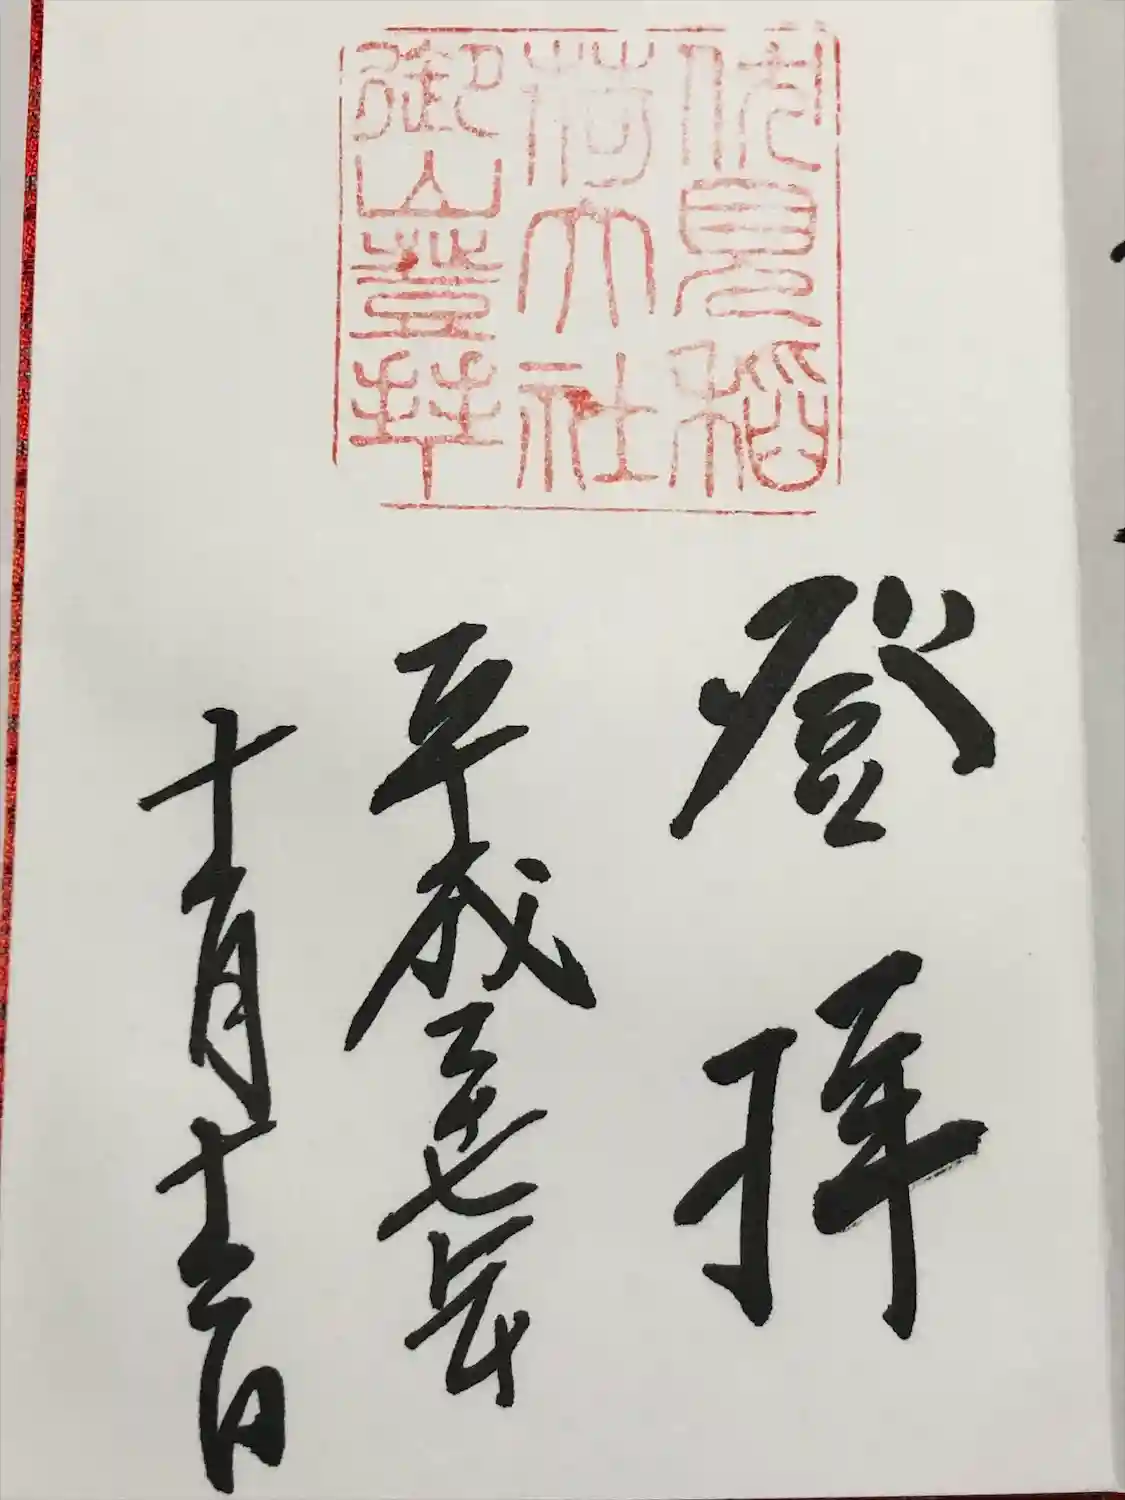 伏見稲
荷大社
御山登拝
登拝
平成二十七年
十一月十二日